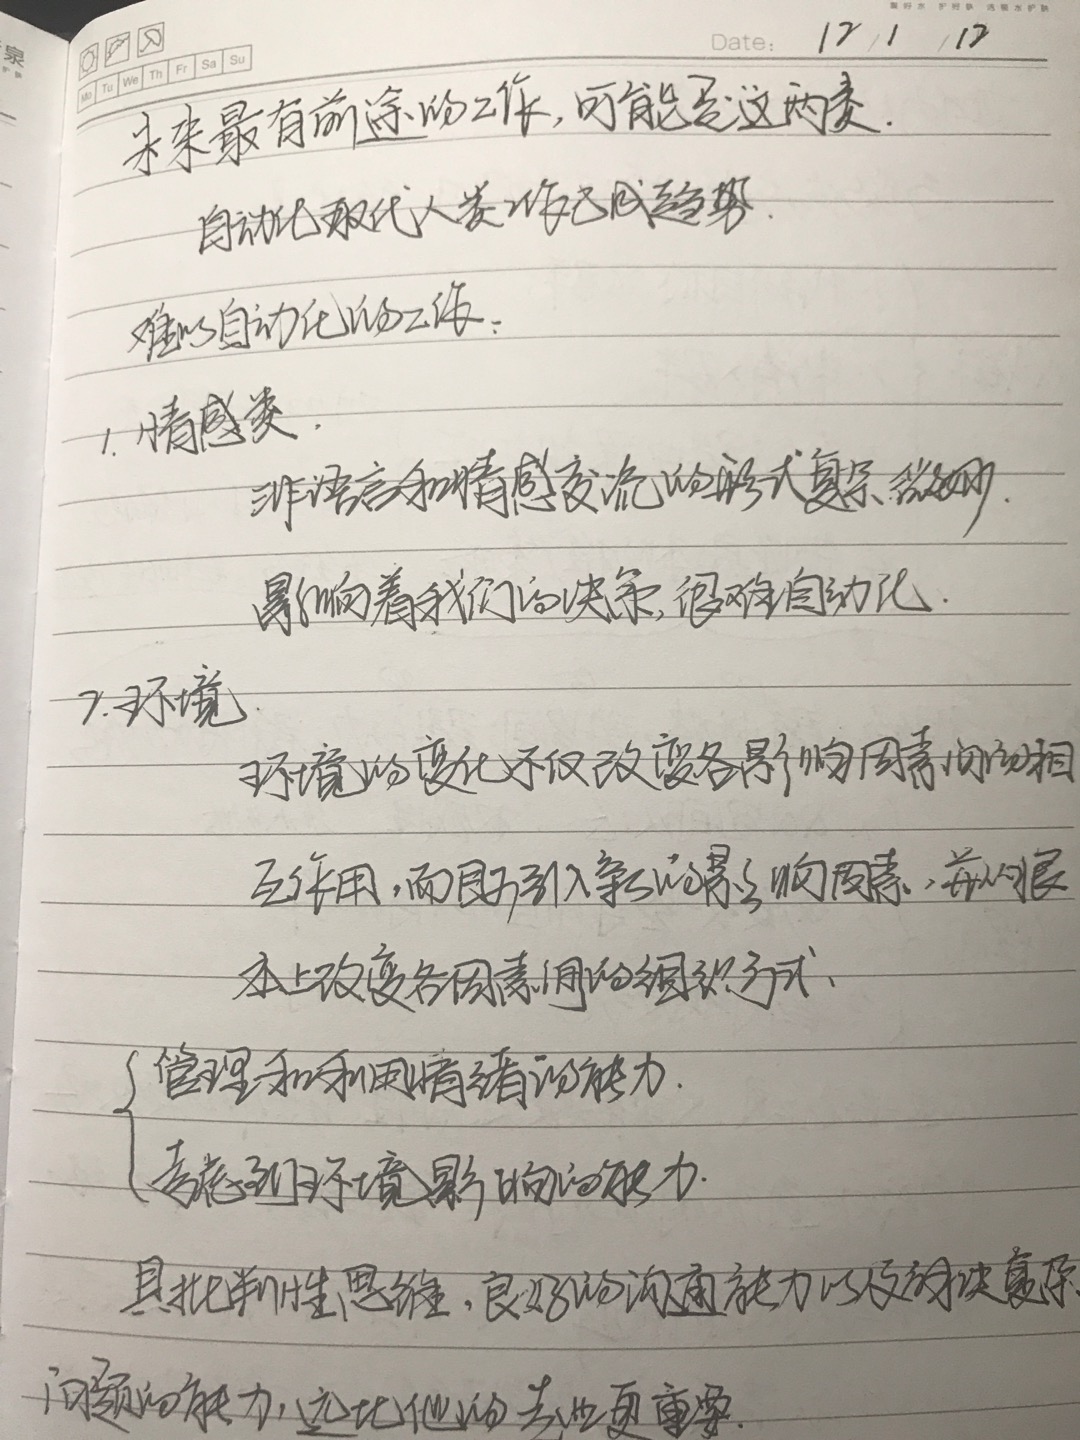 泉
Date: 12/1/12
Mo Tu We Th Fr Sa Su
未来最有前途的工作,可能是这两类.
自动化取代人类工作已成趋势.
难以自动化的工作:
1.情感类.
非语言和情感交流的形式复杂微妙.
影响着我们的决策,很难自动化.
2.环境.
环境的变化不仅改变各影响因素间的相
互作用,而且引入新的影响因素,并从根
本上改变各因素间的组织方式.
管理和利用情绪的能力.
考虑到环境影响的能力.
具批判性思维,良好的沟通能力以及解决复杂
问题的能力,远比他的专业更重要.